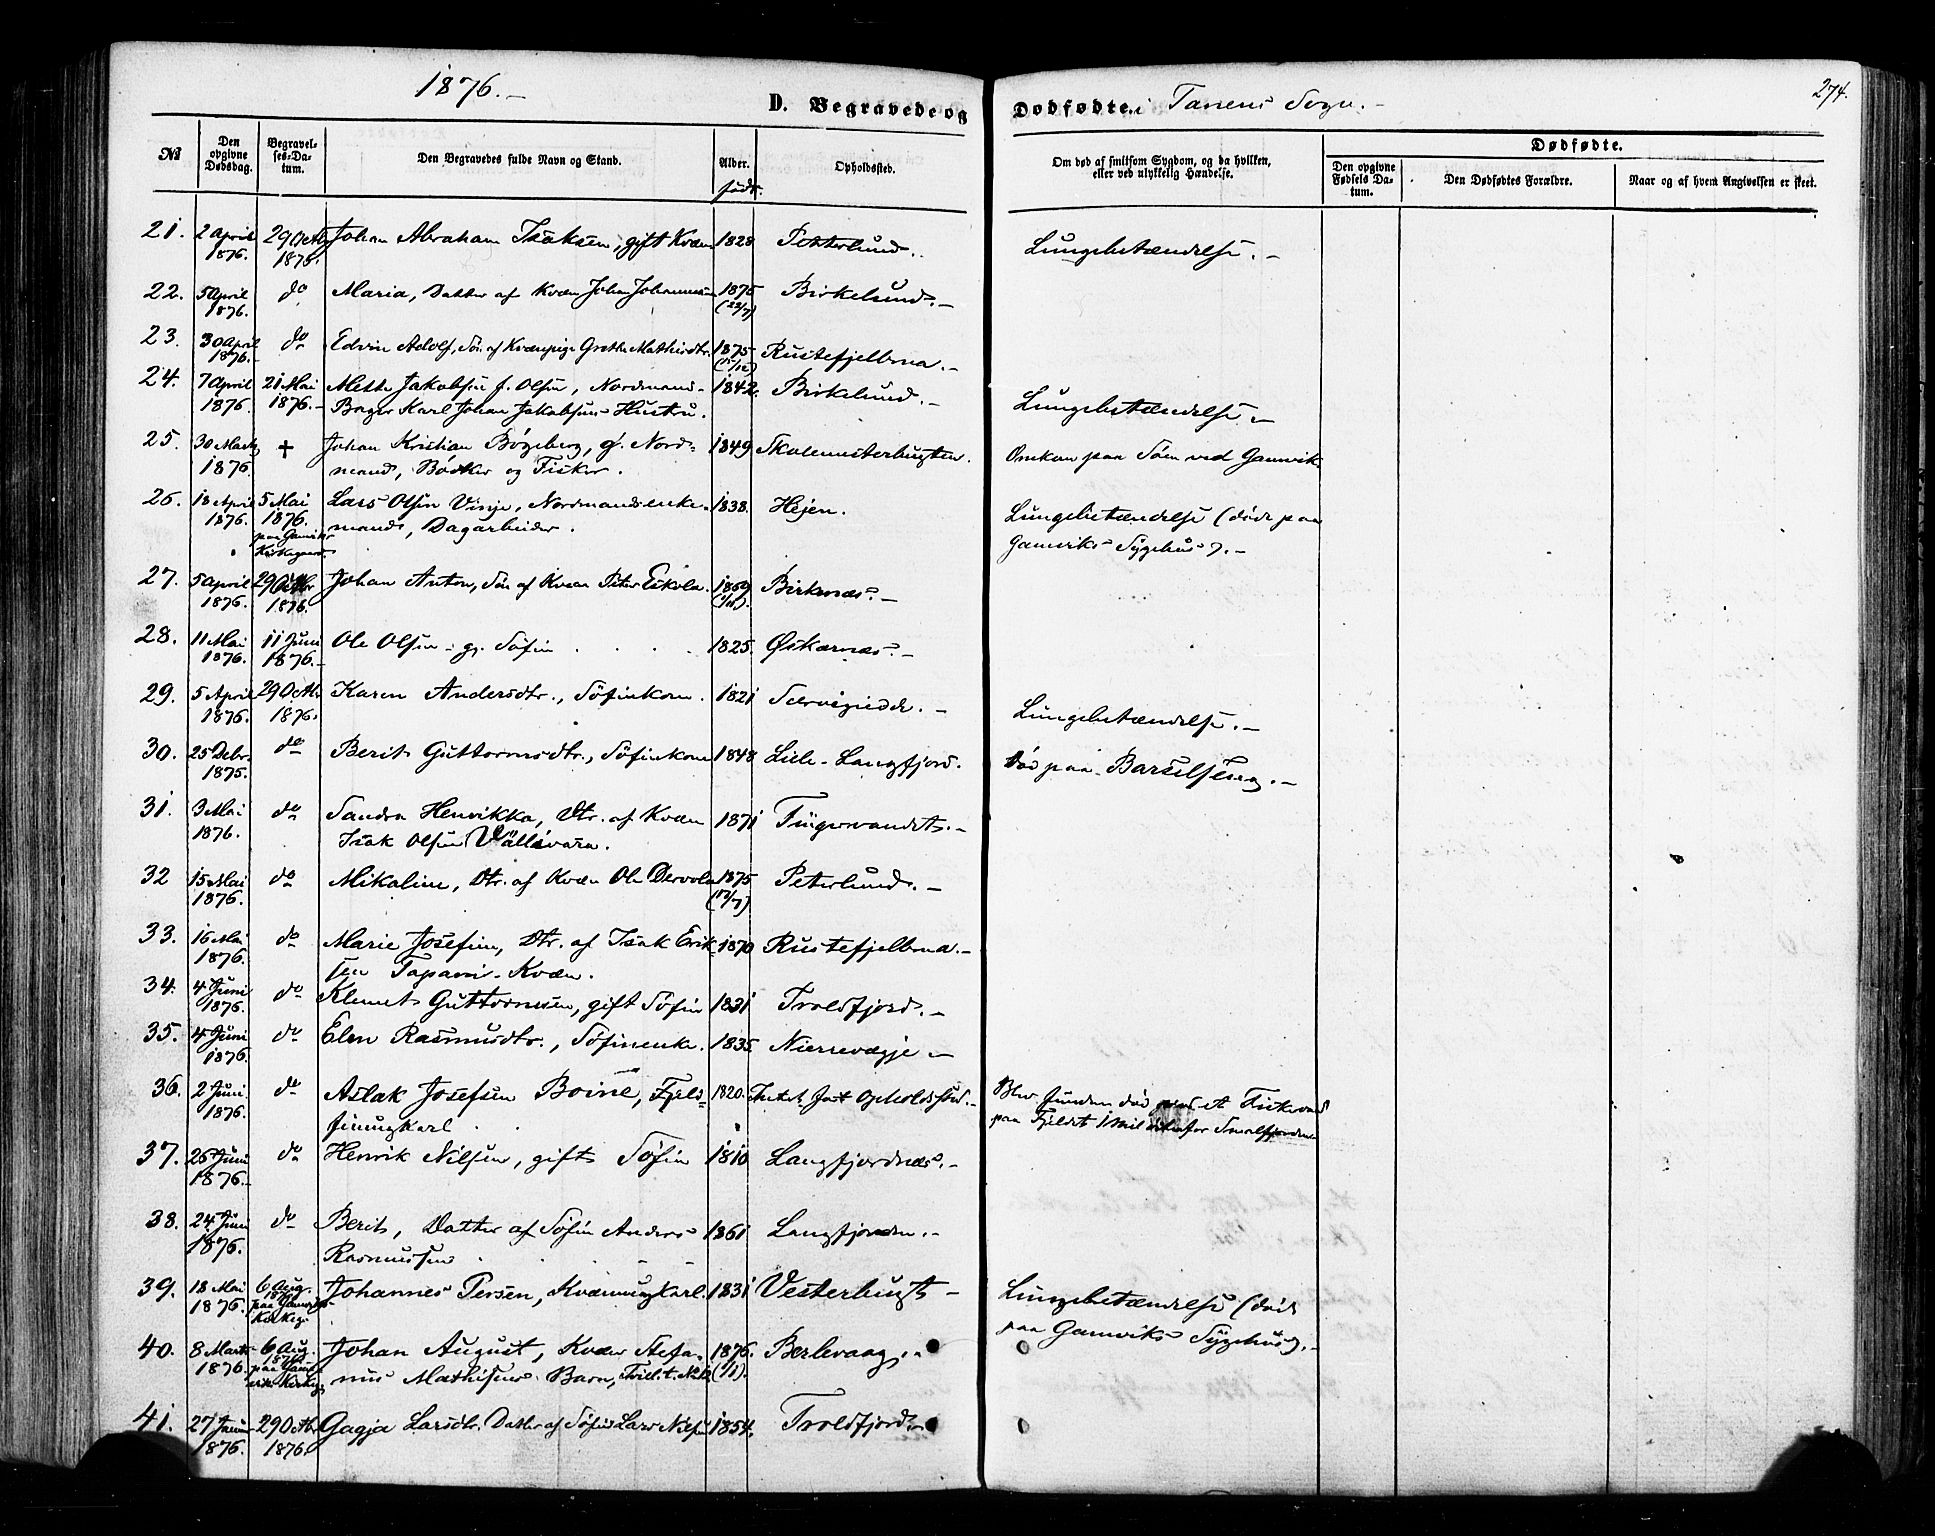 1876.-
D. Begravede og Dødfødte. i Tanens Sogn.-
274.
№
Den opgivne Dødsdag.
Begravelses-Datum.
Den Begravedes fulde Navn og Stand.
Alder.
født.
Opholdssted.
Om død af smitsom Sygdom, og da hvilken, eller ved ulykkelig Hændelse.
Dødfødte.
Den opgivne Fødsels Datum.
Den Dødfødtes Forældre.
Naar og af hvem Angivelsen er skeet.
21. 2 April 29 Octbr Johan Abraham Isaksen, gift Kvæn 1828 Petterlund. Lungebetændelse.-
1876. 1876.
22. 5 April do Maria, Datter af Kvæn Johan Johannesen 1875 Birkelund.-
1876. (22/7)
23. 30 April do Edvin Adolf, Søn af Kvænpige Grethe Mathisdtr. 1875 Rustefjelbma.-
1876. (17/12)
24. 7 April 21 Mai Mette Jakobsen f. Olsen, Nordmand- 1842. Birkelund.- Lungebetændelse.-
1876. 1876.- Bager Karl Johan Jakobsens Hustru.
25. 30 Marts + Johan Kristian Bøgeberg, g. Nord- 1849 Skolemesterbugten. Omkom paa Søen ved Gamvik
1876. mand, Bødker og Fisker.
26. 18 April 5 Mai Lars Olsen Vinje, Nordmandsenke- 1838. Hejen. Lungebetændelse (død paa
1876. 1876. mand, Dagarbeider. Gamviks Sygehus).-
paa Gamviks Kirkegaard
27. 5 April 29 Octbr Johan Anton, Søn af Kvæn Peter Eskola. 1869 Birkenæs.-
1876. 1876. (1/11).
28. 11 Mai 11 Juni Ole Olsen - g. Søfin 1825. Øskarnæs.-
1876. 1876.-
29. 5 April 29 Octbr Karen Andersdtr., Søfinkone. 1821 Lungebetændelse.-
1876. 1876.
30. 25 Debr. do Berit Guttormsdtr., Søfinkone 1848 Lille-Langfjord. Død paa Barselseng.-
1875.
31. 3 Mai do Sandra Henrikka, Dtr. af Kvæn 1871 Fingervandet.-
1876. Isak Olsen Vällivara.
32 15 Mai do Mikaline, Dtr. af Kvæn Ole Dervola 1875 Peterlund.-
1876. (17/7)
33. 16 Mai do Marie Josefine, Dtr. af Isak Erik- 1870 Rustefjelbma.-
1876. sen Tapani - Kvæn.
34. 4 Juni do Klemet Guttormsen, gift Søfin 1831 Troldfjord.-
1876.
35. 4 Juni do Elen Rasmusdtr., Søfinenke. 1835. Nierrevægje -
1876.
36. 2 Juni do Aslak Josefsen Boine, Fjeld- 1820. Intet fast Opholdssted.- Blev funden død ved et Fiskevand
1876. finungkarl paa Fjeldet 1 Mil udenfor Smalfjorden
37. 26 Juni do Henrik Nilsen, gift Søfin 1810 Langfjordnæs.-
1876.-
38. 24 Juni do Berit, Datter af Søfin Anders 1861 Langfjorden.-
1876. Rasmussen
39. 18 Mai 6 Aug. Johannes Persen, Kvænungkarl. 1831 Vesterbugt - Lungebetændelse (død
1876. 1876 paa Gamviks Kirkeg. paa Gamviks Sygehus).-
40. 8 Marts 6 Aug. Johan August, Kvæn Stefa- 1876. Berlevaag.-
1876. 1876 paa Gamviks Kirkeg. nus Mathisens Barn, Tvill. t. (/1).
41. 27 Januar 29 Octbr Gagja Larsdtr. Datter af Søfin Lars Nilsen 1854. Troldfjord.
1876. 1876.